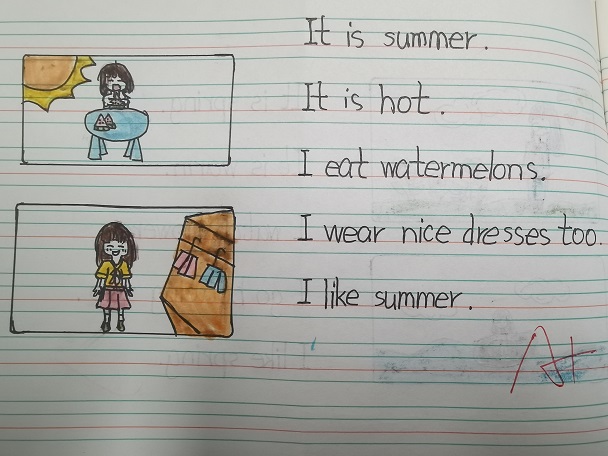 It is summer.
It is hot.
I eat watermelons.
I wear nice dresses too.
I like summer.
A+